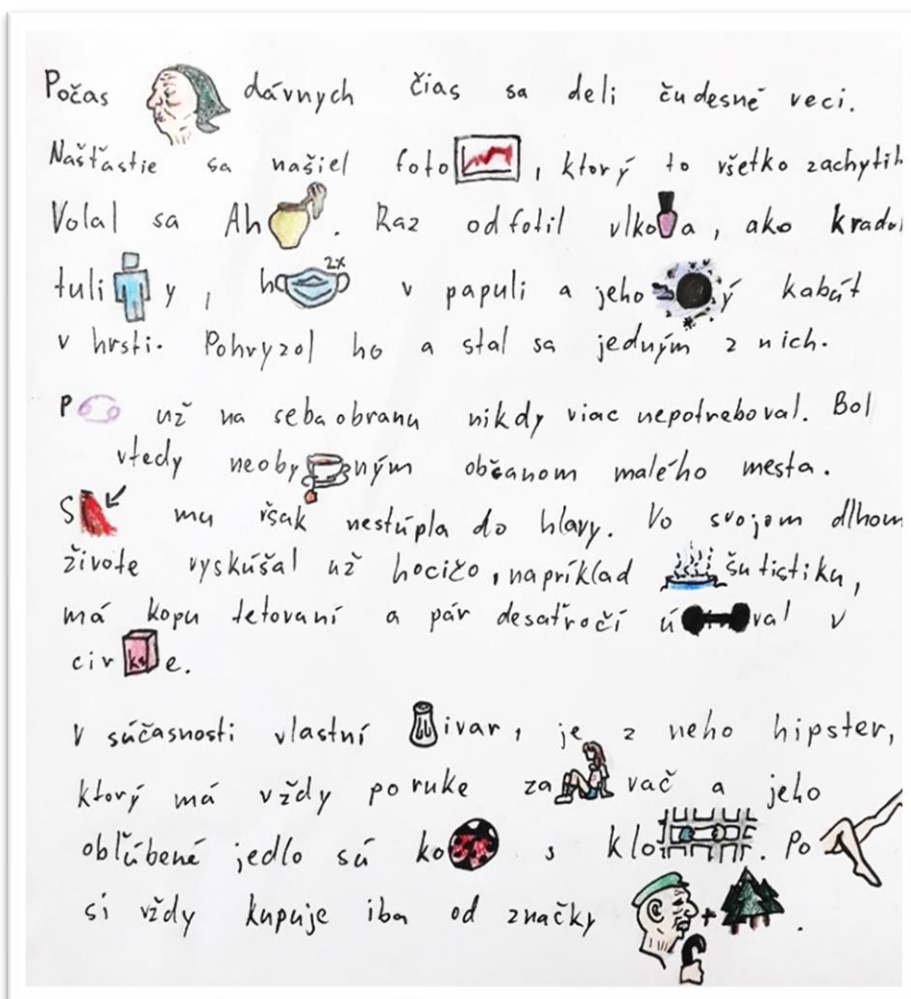 Počas dávnych čias sa deli čudesné veci.
Našťastie sa našiel foto , ktorý to všetko zachytil
Volal sa Ah . Raz odfotil vlko a, ako kradol
tuli y, h 2x v papuli a jeho ý kabát
v hrsti. Pohryzol ho a stal sa jedným z nich.
P už na sebaobranu nikdy viac nepotreboval. Bol
vtedy neoby ným občanom malého mesta.
S mu však nestúpla do hlavy. Vo svojom dlhom
živote vyskúšal už hocičo, napríklad šutistiku,
má kopu tetovaní a pár desaťročí ú val v
cir ks e.
V súčasnosti vlastní ivar, je z neho hipster,
ktorý má vždy poruke za vač a jeho
obľúbené jedlo sú ko s klo . Po
si vždy kupuje iba od značky + .